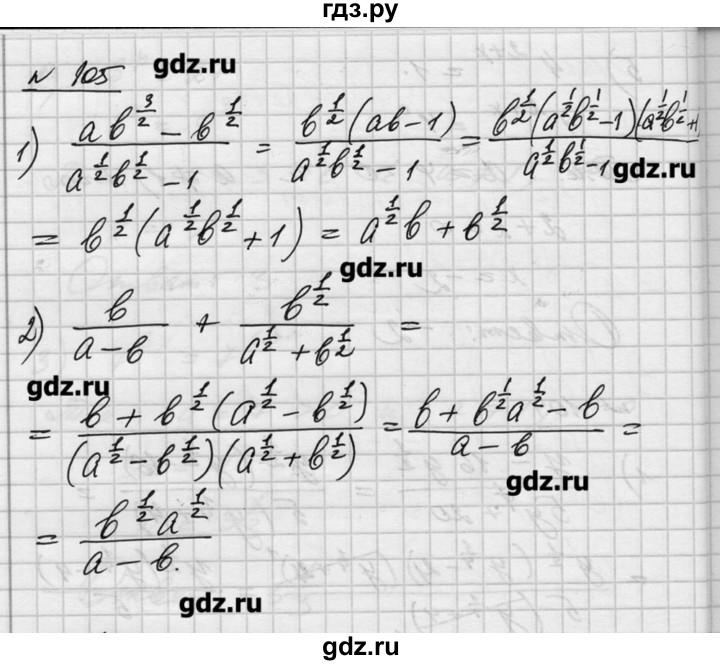 гдз.ру
№ 105
gdz.ru
1) (ab^{3/2} − b^{1/2})/(a^{1/2}b^{1/2} − 1) = (b^{1/2}(ab − 1))/(a^{1/2}b^{1/2} − 1) = (b^{1/2}(a^{1/2}b^{1/2} − 1)(a^{1/2}b^{1/2} +1)/(a^{1/2}b^{1/2} − 1
gdz.ru
= b^{1/2}(a^{1/2}b^{1/2} + 1) = a^{1/2}b + b^{1/2}
gdz.ru
2) b/(a − b) + b^{1/2}/(a^{1/2} + b^{1/2}) =
gdz.ru
= (b + b^{1/2}(a^{1/2} − b^{1/2}))/((a^{1/2} − b^{1/2})(a^{1/2} + b^{1/2})) = (b + b^{1/2}a^{1/2} − b)/(a − b) =
gdz.ru
= (b^{1/2}a^{1/2})/(a − b).
gdz.ru
gdz.ru